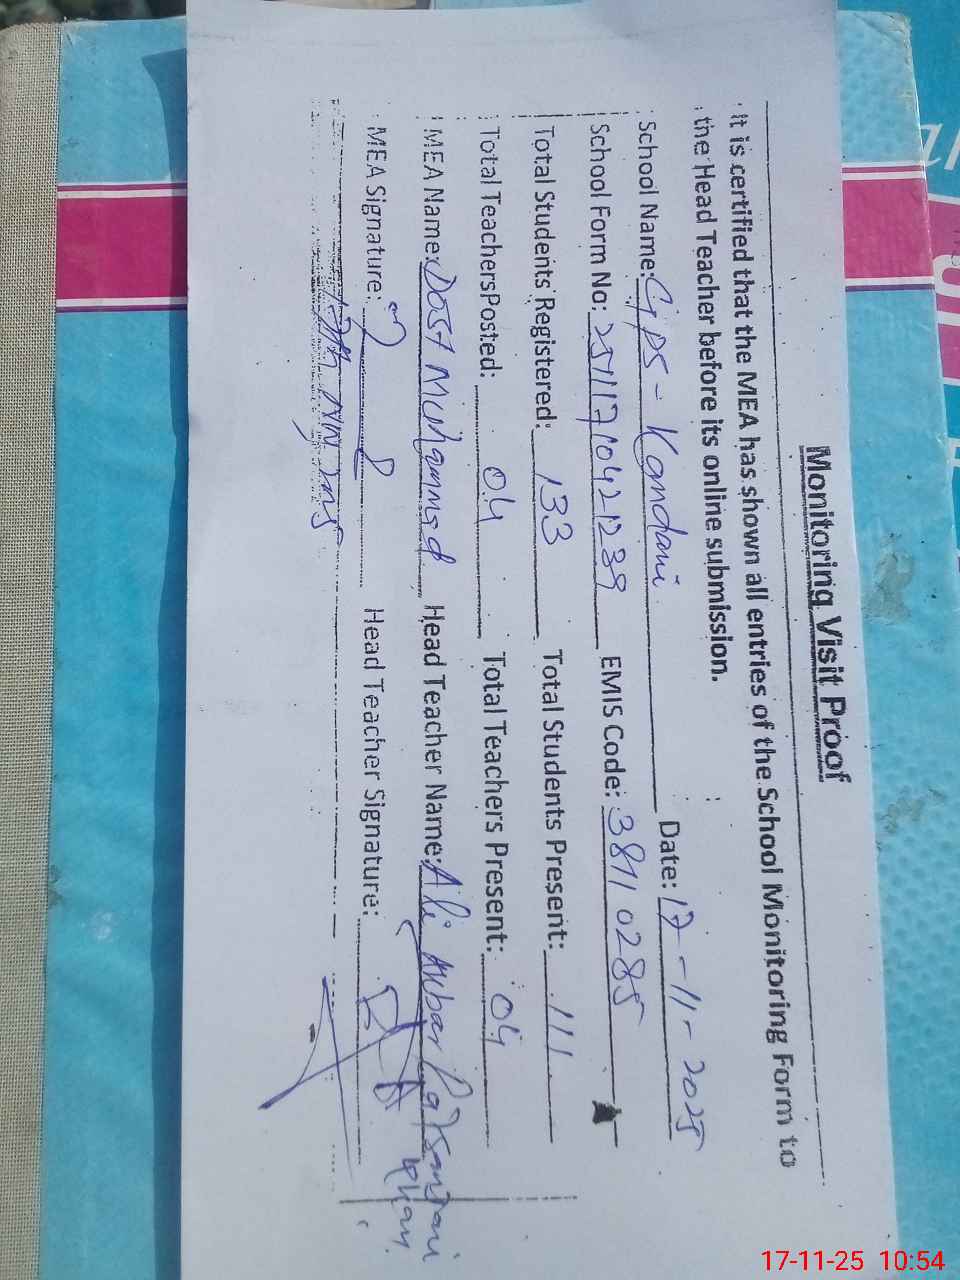 Monitoring Visit Proof
It is certified that the MEA has shown all entries of the School Monitoring Form to
the Head Teacher before its online submission.
School Name: GPS - Kandani Date: 17-11-2025
School Form No: 251117104212239 EMIS Code: 38110285
Total Students Registered: 133 Total Students Present: 111
Total TeachersPosted: 04 Total Teachers Present: 04
MEA Name: Dost Muhammad Head Teacher Name: Ali Akbar
Khan
MEA Signature: Head Teacher Signature:
17-11-25 10:54